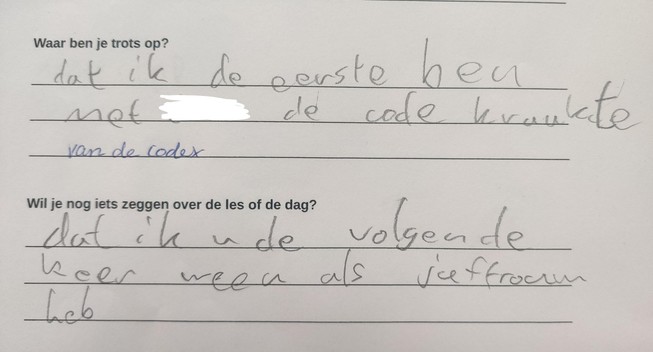 Waar ben je trots op?
dat ik de eerste ben
met de code kraakte
van de codex
Wil je nog iets zeggen over de les of de dag?
dat ik u de volgende
keer weer als jeffrouw
heb